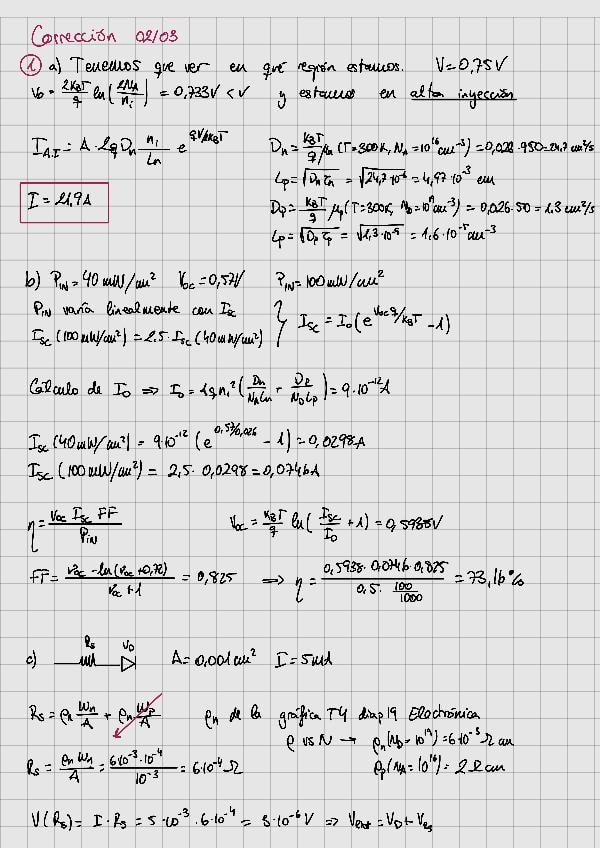 Corrección 02/03
① a) Tenemos que ver en qué región estamos. V=0,75V
V₀ = 2K_BT/q ln(2N_A/n_i) = 0,733V < V y estamos en alta inyección
I_A.I = A·2qD_n n_i/L_n e^(qV/2K_BT)
I = 21,9A
D_n = K_BT/q μ_n (T=300K, N_A=10¹⁶cm⁻³) = 0,026·950=24,7 cm²/s
L_p = √(D_n τ_n) = √(24,7·10⁻⁶) = 4,97·10⁻³ cm
D_p = K_BT/q μ_p (T=300K, N_D=10¹⁹cm⁻³) = 0,026·50 = 1,3 cm²/s
L_p = √(D_p τ_p) = √(1,3·10⁻⁹) = 1,6·10⁻⁵ cm⁻³
b) P_IN = 40mW/cm² V_OC=0,57V P_IN=100mW/cm²
P_IN varía linealmente con I_SC
I_SC (100mW/cm²) = 2,5·I_SC (40mW/cm²) } I_SC = I₀(e^(V_OC q/K_BT) -1)
Cálculo de I₀ ⇒ I₀ = Aqn_i²(D_n/N_AL_n + D_p/N_DL_p) = 9·10⁻¹²A
I_SC (40mW/cm²) = 9·10⁻¹² (e^(0,57/0,026) - 1) = 0,0298A
I_SC (100mW/cm²) = 2,5·0,0298 = 0,0746A
η = V_OC I_SC FF/P_IN V_OC = K_BT/q ln(I_SC/I₀ + 1) = 0,5938V
FF = v_OC - ln(v_OC + 0,72)/v_OC + 1 = 0,825 ⇒ η = 0,5938·0,0746·0,825/0,5·100/1000 = 73,16%
c) R_S V_D A=0,001cm² I=5mA
R_S = ρ_n W_n/A + ρ_n W_p/A ρ_n de la gráfica T4 diap19 Electrónica
ρ vs N → ρ_n(N_D=10¹⁹)=6·10⁻³ Ω cm
R_S = ρ_n W_n/A = 6·10⁻³·10⁻⁴/10⁻³ = 6·10⁻⁴ Ω ρ_p(N_A=10¹⁶)=2Ω cm
V(R_S) = I·R_S = 5·10⁻³·6·10⁻⁴ = 3·10⁻⁶ V ⇒ V_ext = V_D + V_RS